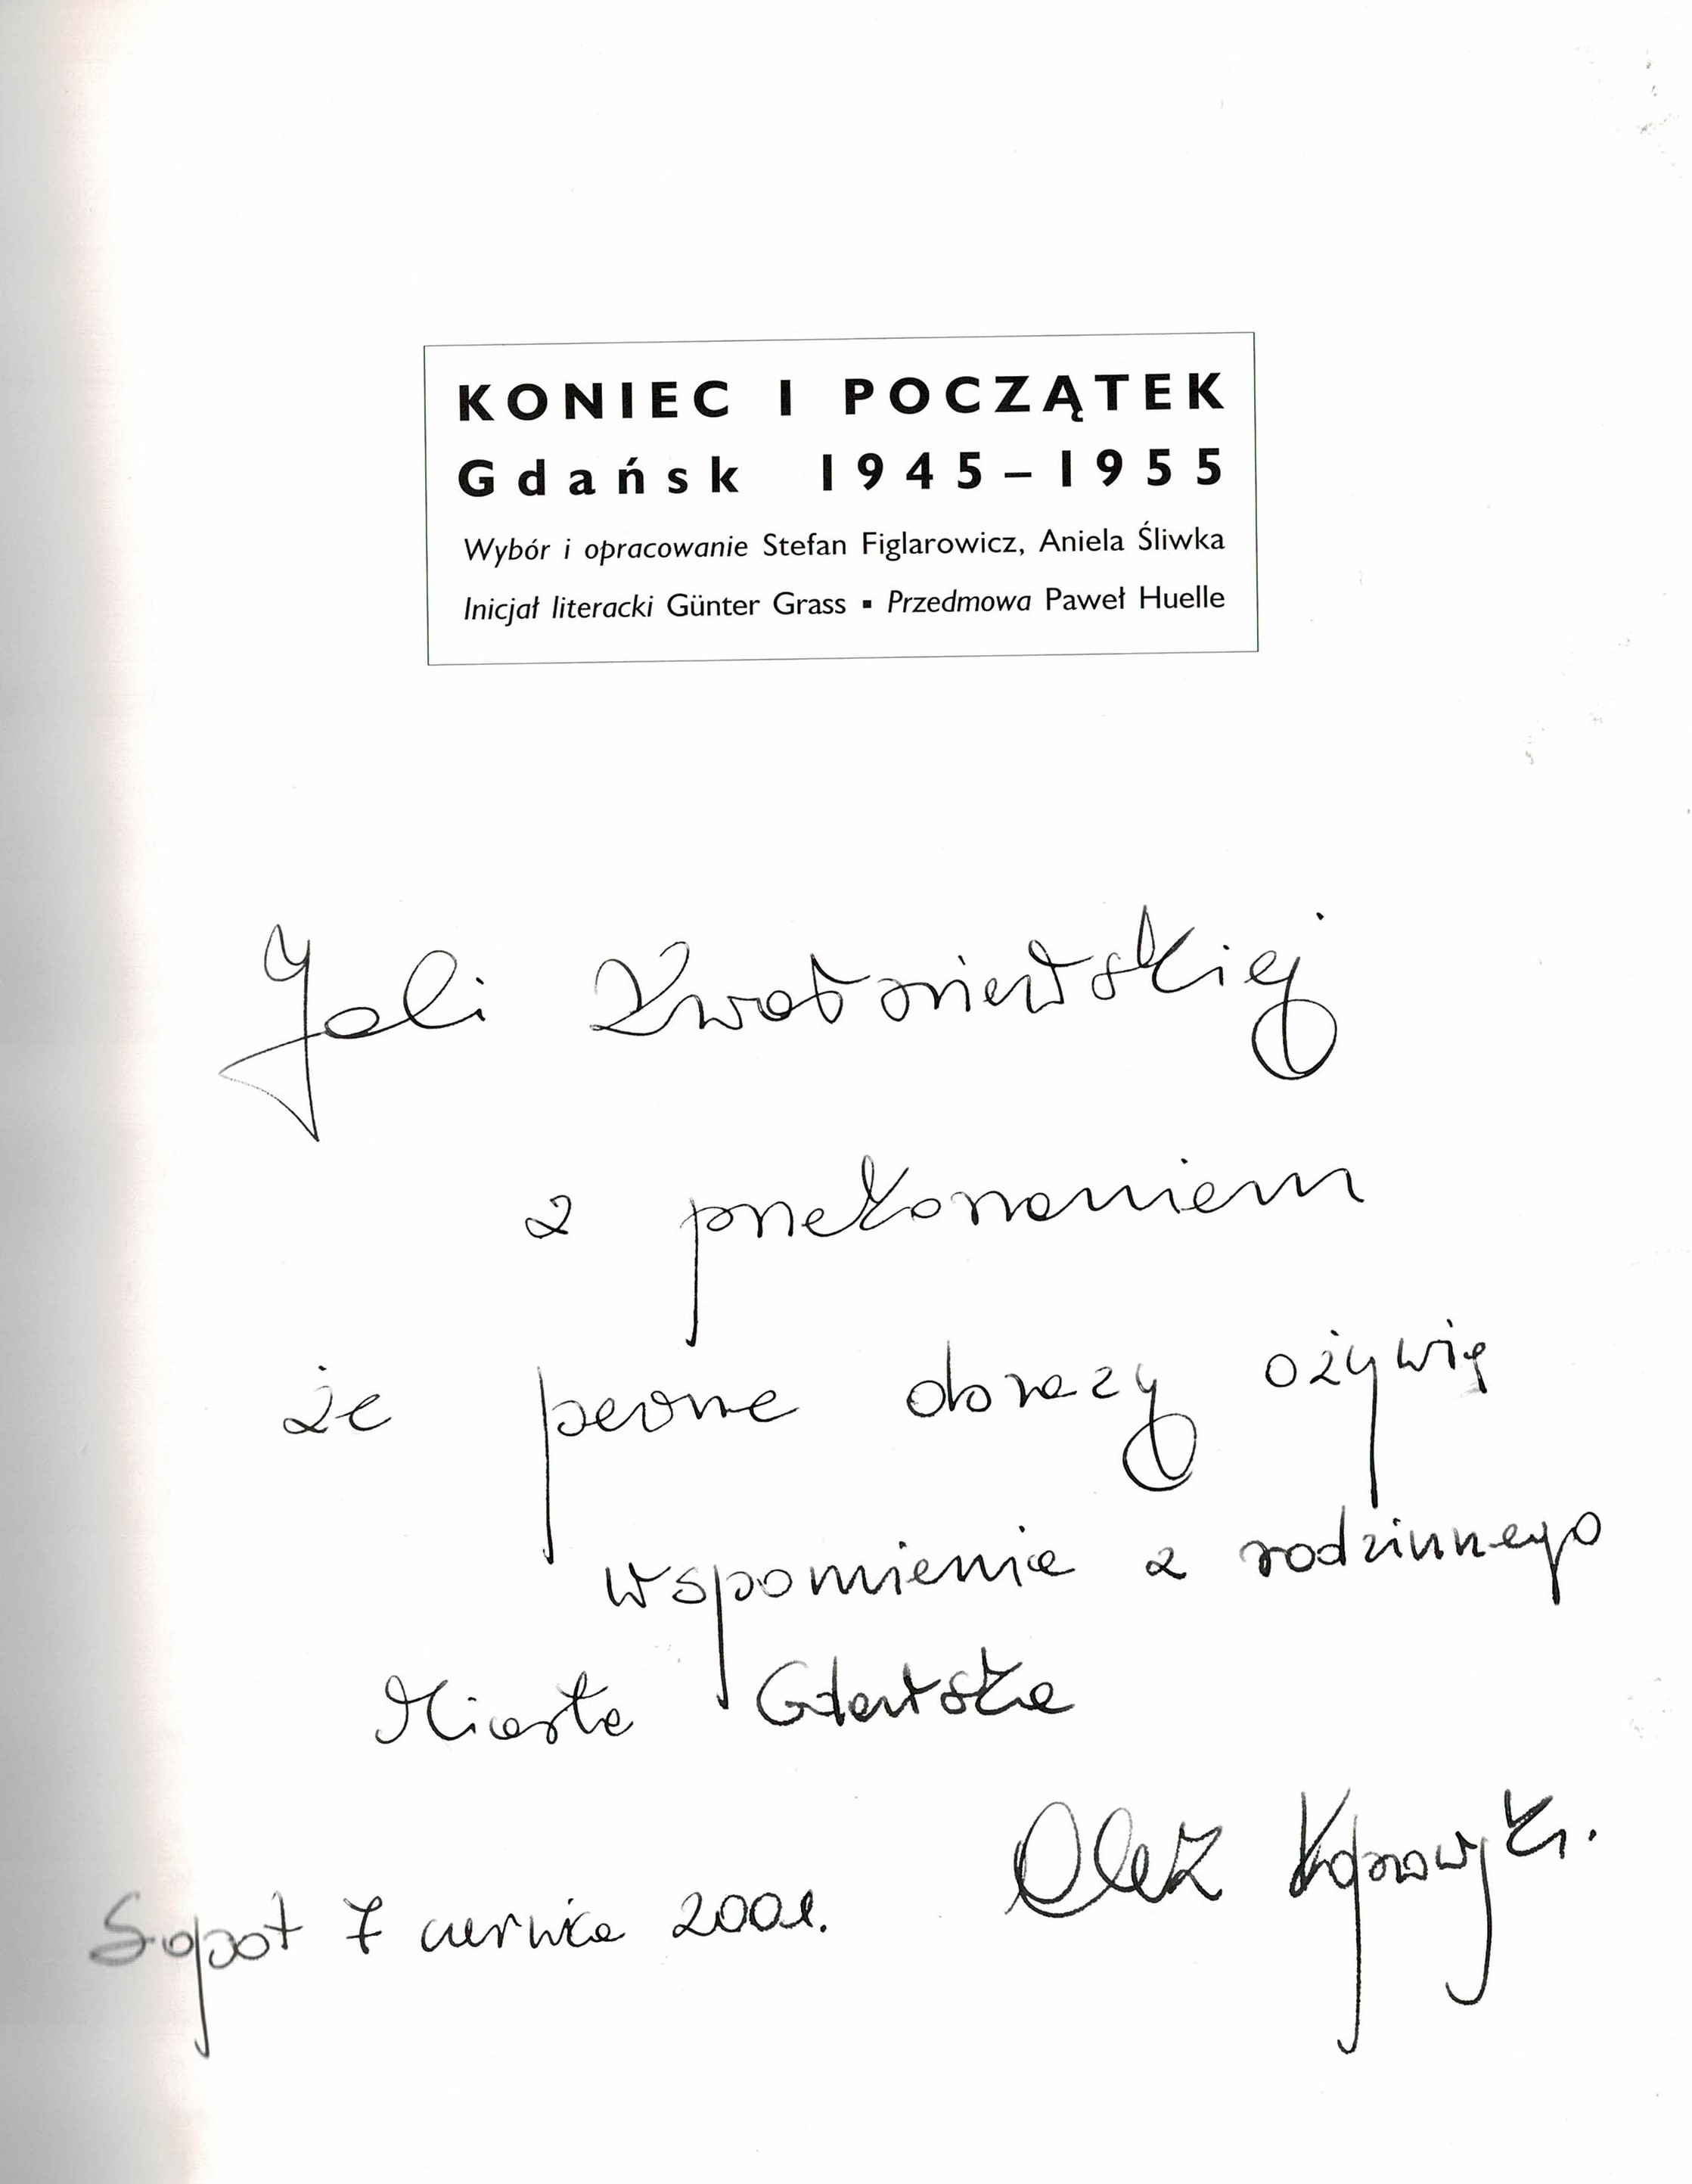 KONIEC I POCZĄTEK
Gdańsk 1945–1955
Wybór i opracowanie Stefan Figlarowicz, Aniela Śliwka
Inicjał literacki Günter Grass ▪ Przedmowa Paweł Huelle
Joli Kwaśniewskiej
z przekonaniem
że pewne obrazy ożywią
wspomnienia z rodzinnego
Miasta Gdańska
Olek
Sopot 7 czerwca 2001.